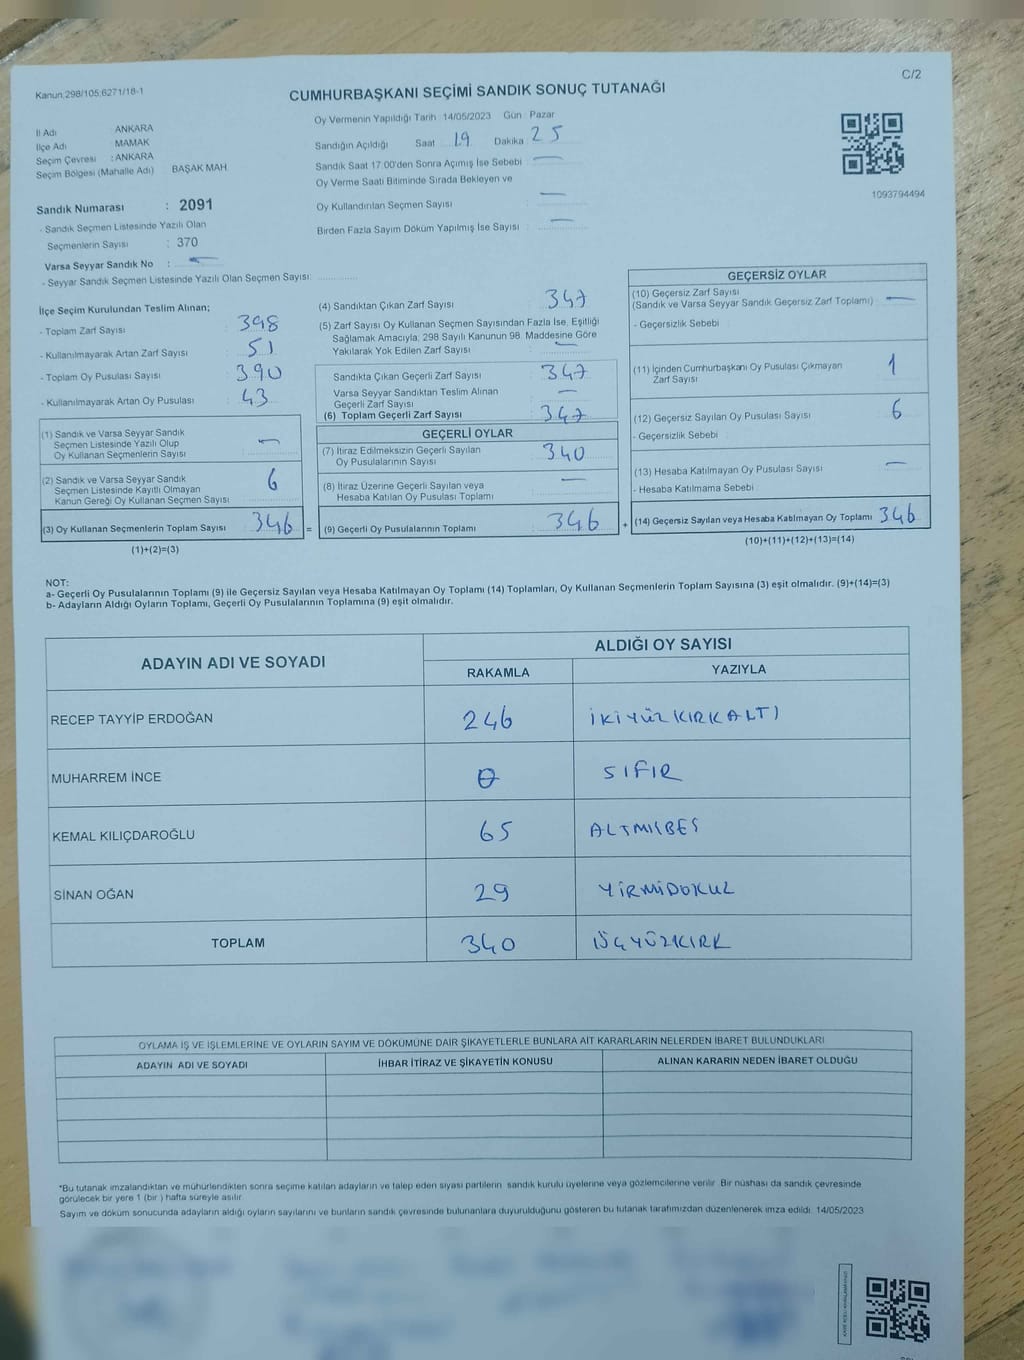 C/2
Kanun,298/105,6271/18-1
CUMHURBAŞKANI SEÇİMİ SANDIK SONUÇ TUTANAĞI
Oy Vermenin Yapıldığı Tarih :14/05/2023 Gün : Pazar
İl Adı ANKARA
İlçe Adı MAMAK
Seçim Çevresi : ANKARA
Seçim Bölgesi (Mahalle Adı) BAŞAK MAH.
Sandığın Açıldığı Saat 19 Dakika 25
Sandık Saat 17:00'den Sonra Açımış İse Sebebi : —
Oy Verme Saati Bitiminde Sırada Bekleyen ve
Oy Kullandırılan Seçmen Sayısı : —
Birden Fazla Sayım Döküm Yapılmış İse Sayısı : —
1093794494
Sandık Numarası : 2091
- Sandık Seçmen Listesinde Yazılı Olan
Seçmenlerin Sayısı : 370
Varsa Seyyar Sandık No : —
- Seyyar Sandık Seçmen Listesinde Yazılı Olan Seçmen Sayısı
İlçe Seçim Kurulundan Teslim Alınan;
- Toplam Zarf Sayısı : 398
- Kullanılmayarak Artan Zarf Sayısı : 51
- Toplam Oy Pusulası Sayısı : 390
- Kullanılmayarak Artan Oy Pusulası : 43
(1) Sandık ve Varsa Seyyar Sandık
Seçmen Listesinde Yazılı Olup
Oy Kullanan Seçmenlerin Sayısı —
(2) Sandık ve Varsa Seyyar Sandık
Seçmen Listesinde Kayıtlı Olmayan
Kanun Gereği Oy Kullanan Seçmen Sayısı 6
(3) Oy Kullanan Seçmenlerin Toplam Sayısı 346 =
(1)+(2)=(3)
(4) Sandıktan Çıkan Zarf Sayısı 347
(5) Zarf Sayısı Oy Kullanan Seçmen Sayısından Fazla İse, Eşitliği
Sağlamak Amacıyla; 298 Sayılı Kanunun 98. Maddesine Göre
Yakılarak Yok Edilen Zarf Sayısı —
Sandıkta Çıkan Geçerli Zarf Sayısı 347
Varsa Seyyar Sandıktan Teslim Alınan
Geçerli Zarf Sayısı —
(6) Toplam Geçerli Zarf Sayısı 347
GEÇERLİ OYLAR
(7) İtiraz Edilmeksizin Geçerli Sayılan
Oy Pusulalarının Sayısı 340
(8) İtiraz Üzerine Geçerli Sayılan veya
Hesaba Katılan Oy Pusulası Toplamı —
(9) Geçerli Oy Pusulalarının Toplamı 346 +
GEÇERSİZ OYLAR
(10) Geçersiz Zarf Sayısı
(Sandık ve Varsa Seyyar Sandık Geçersiz Zarf Toplamı) —
- Geçersizlik Sebebi :
(11) İçinden Cumhurbaşkanı Oy Pusulası Çıkmayan
Zarf Sayısı 1
(12) Geçersiz Sayılan Oy Pusulası Sayısı 6
- Geçersizlik Sebebi :
(13) Hesaba Katılmayan Oy Pusulası Sayısı —
- Hesaba Katılmama Sebebi :
(14) Geçersiz Sayılan veya Hesaba Katılmayan Oy Toplamı 346
(10)+(11)+(12)+(13)=(14)
NOT:
a- Geçerli Oy Pusulalarının Toplamı (9) ile Geçersiz Sayılan veya Hesaba Katılmayan Oy Toplamı (14) Toplamları, Oy Kullanan Seçmenlerin Toplam Sayısına (3) eşit olmalıdır. (9)+(14)=(3)
b- Adayların Aldığı Oyların Toplamı, Geçerli Oy Pusulalarının Toplamına (9) eşit olmalıdır.
ADAYIN ADI VE SOYADI ALDIĞI OY SAYISI
RAKAMLA YAZIYLA
RECEP TAYYİP ERDOĞAN 246 İKİYÜZKIRKALTI
MUHARREM İNCE 0 SIFIR
KEMAL KILIÇDAROĞLU 65 ALTMIŞBEŞ
SİNAN OĞAN 29 YİRMİDOKUZ
TOPLAM 340 ÜÇYÜZKIRK
OYLAMA İŞ VE İŞLEMLERİNE VE OYLARIN SAYIM VE DÖKÜMÜNE DAİR ŞİKAYETLERLE BUNLARA AİT KARARLARIN NELERDEN İBARET BULUNDUKLARI
ADAYIN ADI VE SOYADI İHBAR İTİRAZ VE ŞİKAYETİN KONUSU ALINAN KARARIN NEDEN İBARET OLDUĞU
*Bu tutanak imzalandıktan ve mühürlendikten sonra seçime katılan adayların ve talep eden siyasi partilerin sandık kurulu üyelerine veya gözlemcilerine verilir. Bir nüshası da sandık çevresinde
görülecek bir yere 1 (bir ) hafta süreyle asılır.
Sayım ve döküm sonucunda adayların aldığı oyların sayılarını ve bunların sandık çevresinde bulunanlara duyurulduğunu gösteren bu tutanak tarafımızdan düzenlenerek imza edildi. 14/05/2023